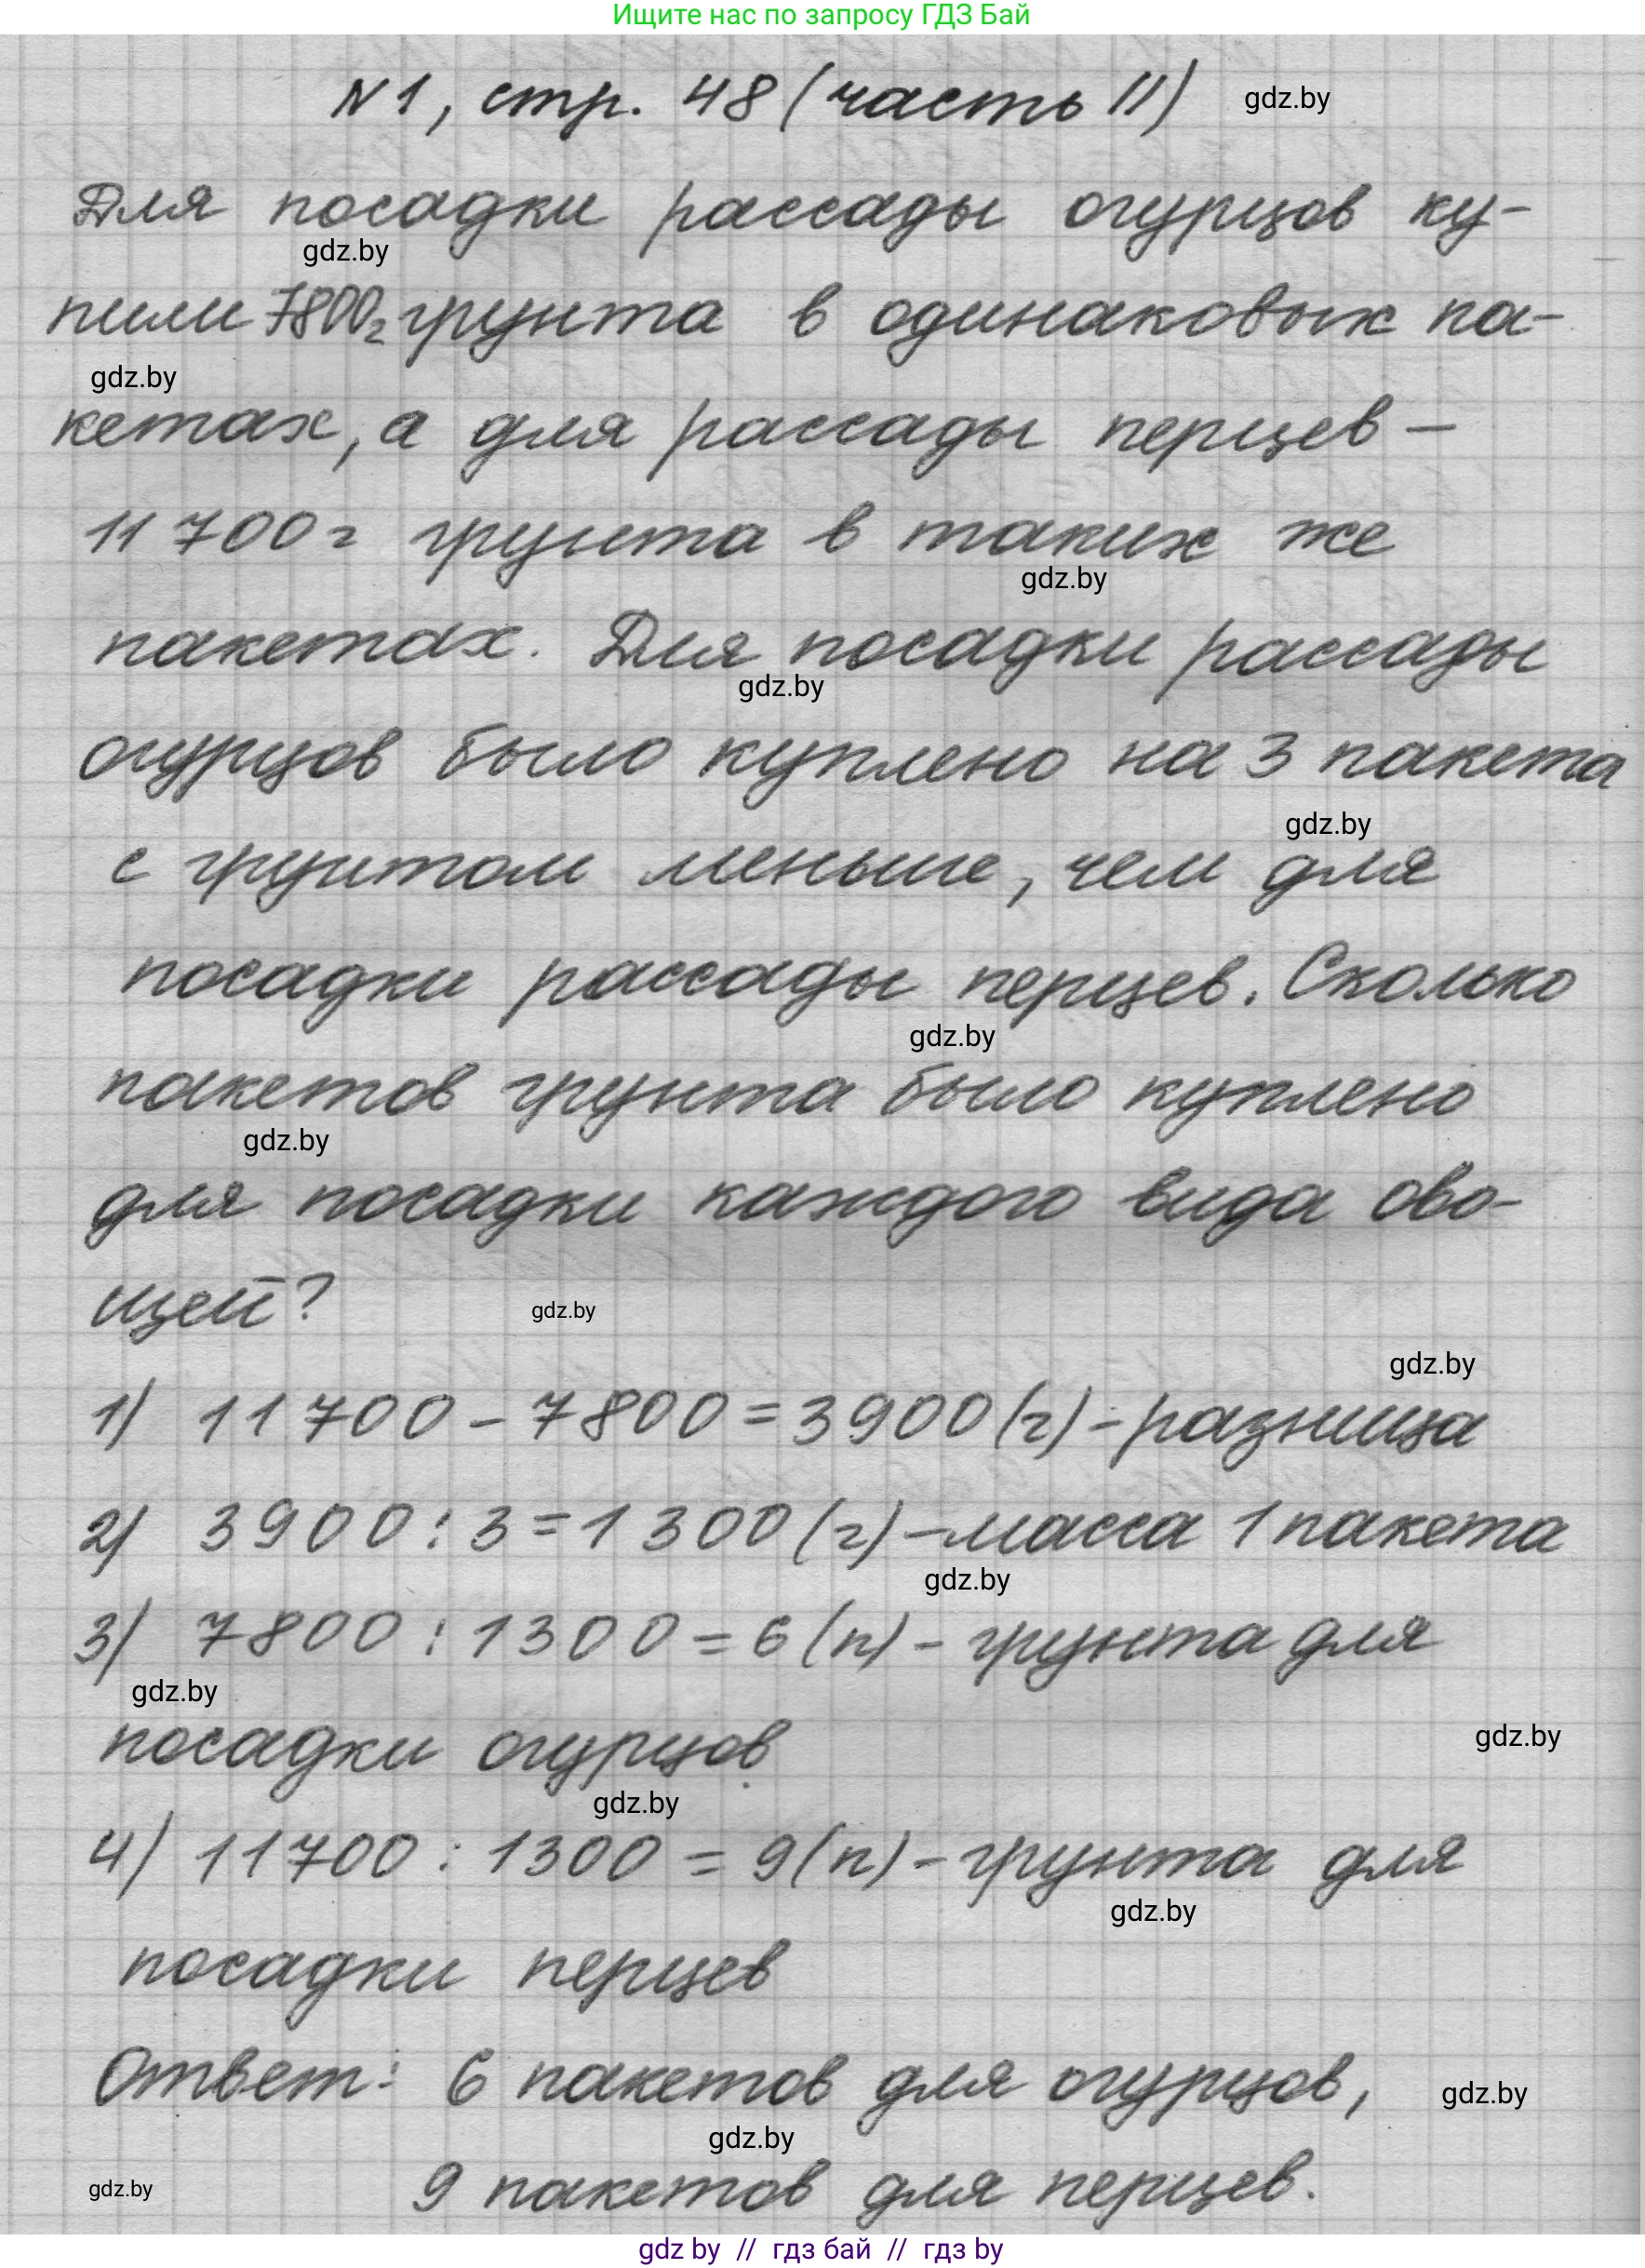 Ищите нас по запросу ГДЗ Бай
N1, стр. 48 (часть II) gdz.by
Для посадки рассады огурцов ку-
gdz.by
пили 7800г грунта в одинаковых па-
gdz.by
кетах, а для рассады перцев –
11 700 г грунта в таких же
gdz.by
пакетах. Для посадки рассады
gdz.by
огурцов было куплено на 3 пакета
gdz.by
с грунтом меньше, чем для
посадки рассады перцев. Сколько
gdz.by
пакетов грунта было куплено
gdz.by
для посадки каждого вида ово-
щей?
gdz.by
gdz.by
1) 11700 – 7800 = 3900 (г) - разница
2) 3900 : 3 = 1300 (г) – масса 1 пакета
gdz.by
3) 7800 : 1300 = 6 (п) – грунта для
gdz.by
посадки огурцов
gdz.by
gdz.by
4) 11700 : 1300 = 9 (п) – грунта для
gdz.by
посадки перцев
Ответ: 6 пакетов для огурцов,
gdz.by
gdz.by
9 пакетов для перцев.
gdz.by
gdz by // гдз бай // гдз by